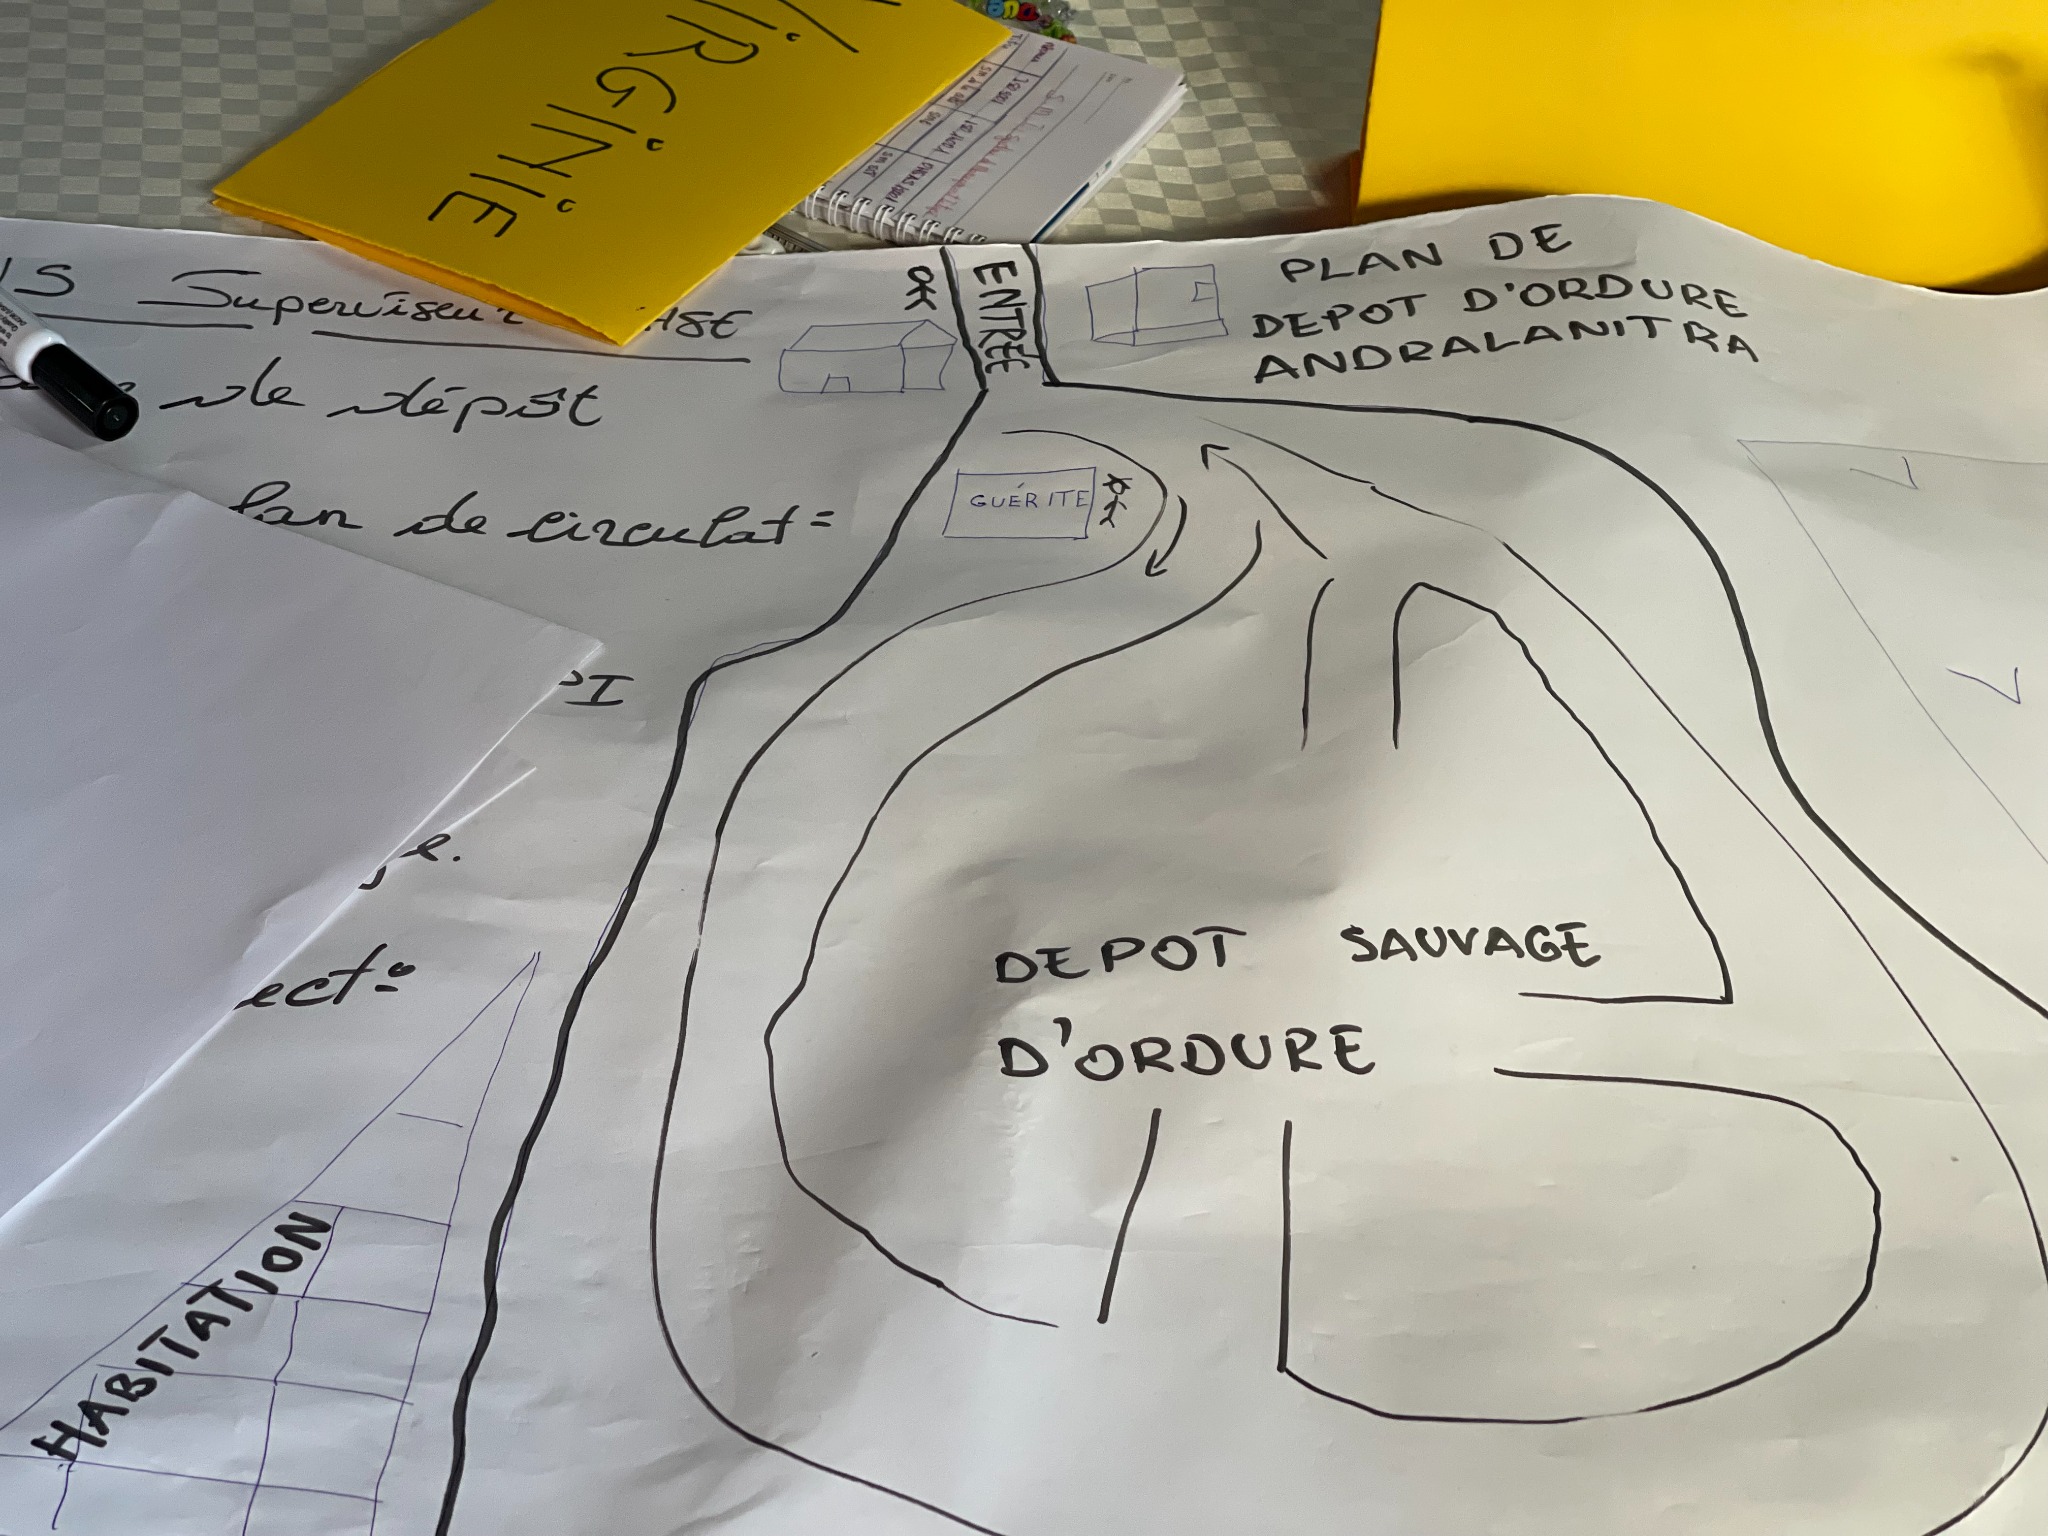 VIRGINIE
S Superviseur HSE
de dépôt
lan de circulat=
PI
e.
ect°
ENTRÉE
PLAN DE
DEPOT D'ORDURE
ANDRALANITRA
GUÉRITE
DEPOT SAUVAGE
D'ORDURE
HABITATION